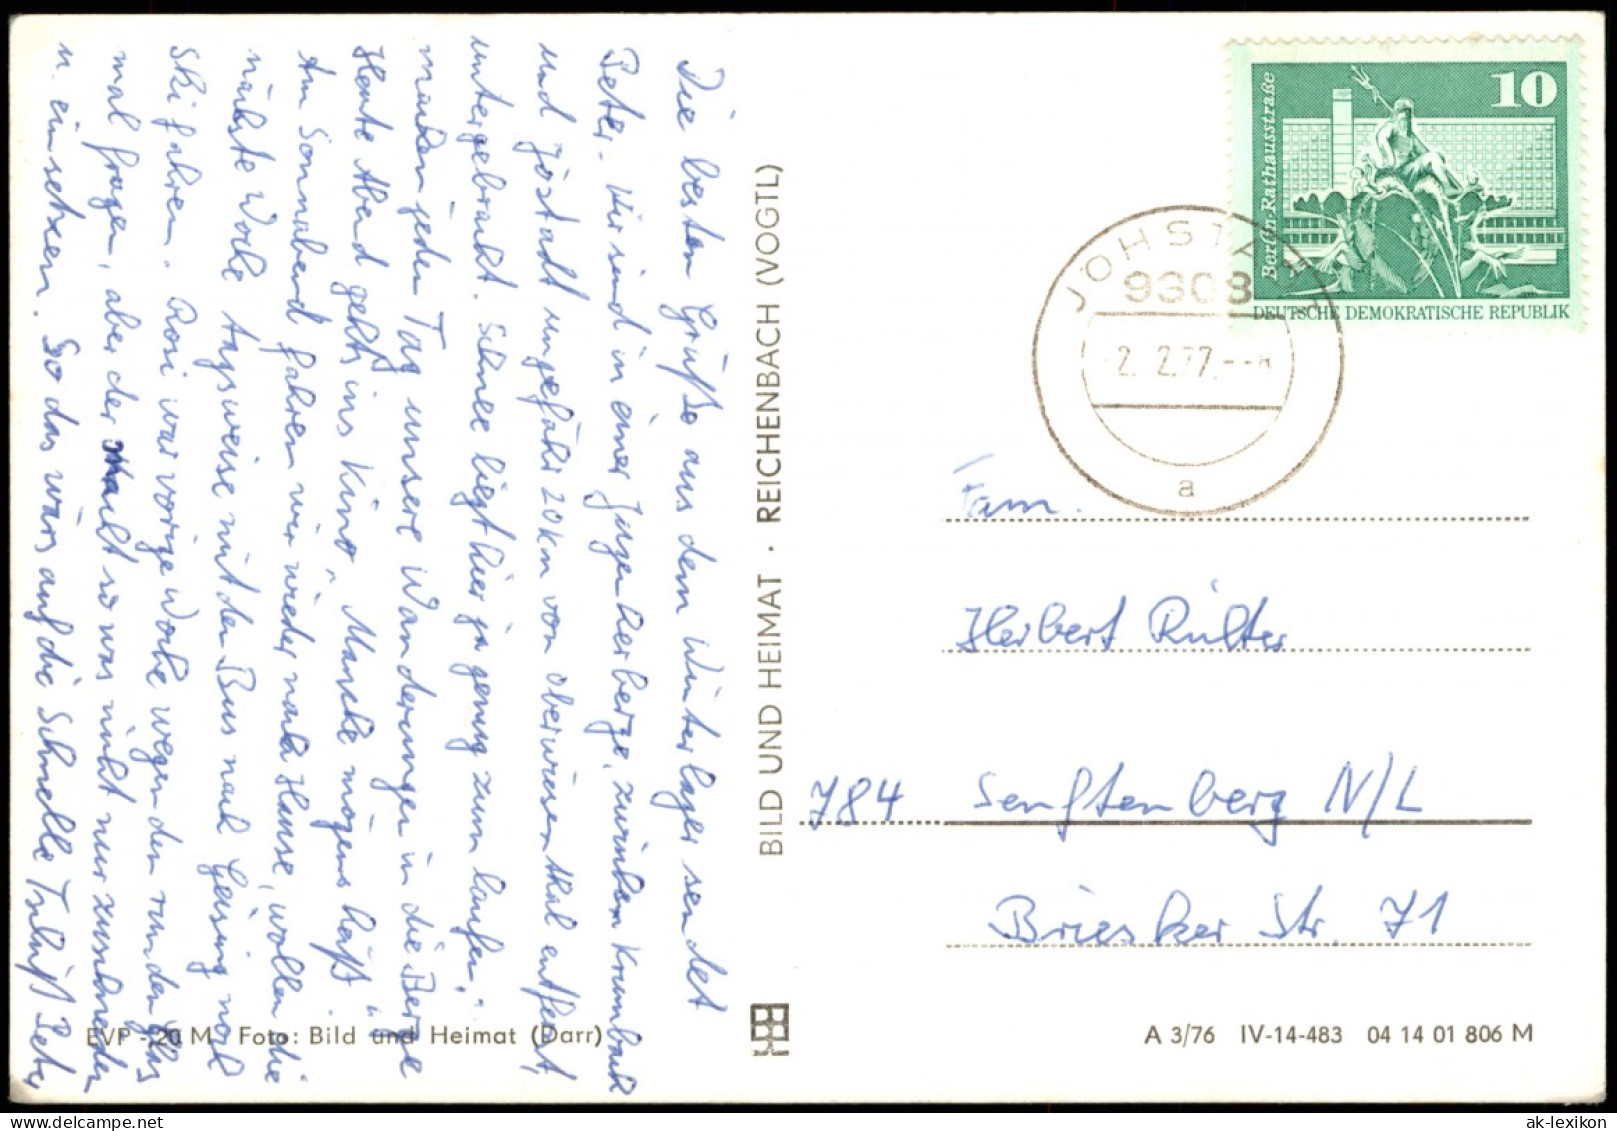 Die besten Grüße aus dem Winterlager sendet
Peter. Wir sind in einer Jugendherberge, zwischen Krumbach
und Jöstadt ungefähr 20 km von Oberwiesenthal entfernt,
untergebracht. Schnee liegt hier ja genug zum laufen,
machen jeden Tag unsere Wanderungen in die Berge
Heute Abend gehts ins Kino, „Manche mögens heiß".
Am Sonnabend fahren wir wieder nach Hause, wollen die
nächste Woche tagsweise mit den Bus nach Geising noch
Ski fahren. Rosi war vorige Woche wegen den runden Glas
mal fragen, aber der so was nicht nur zuschneiden
u. einsetzen. So das wärs auf die Schnelle Tschüß Peter
BILD UND HEIMAT · REICHENBACH (VOGTL)
EVP -20 M Foto: Bild und Heimat (Darr)
10
Berlin-Rathausstraße
DEUTSCHE DEMOKRATISCHE REPUBLIK
JÖHSTADT
9308
-2. 2.77.--
a
Fam.
Herbert
784 Senftenberg N/L
Briesker Str. 71
A 3/76 IV-14-483 04 14 01 806 M
ak-lexikon